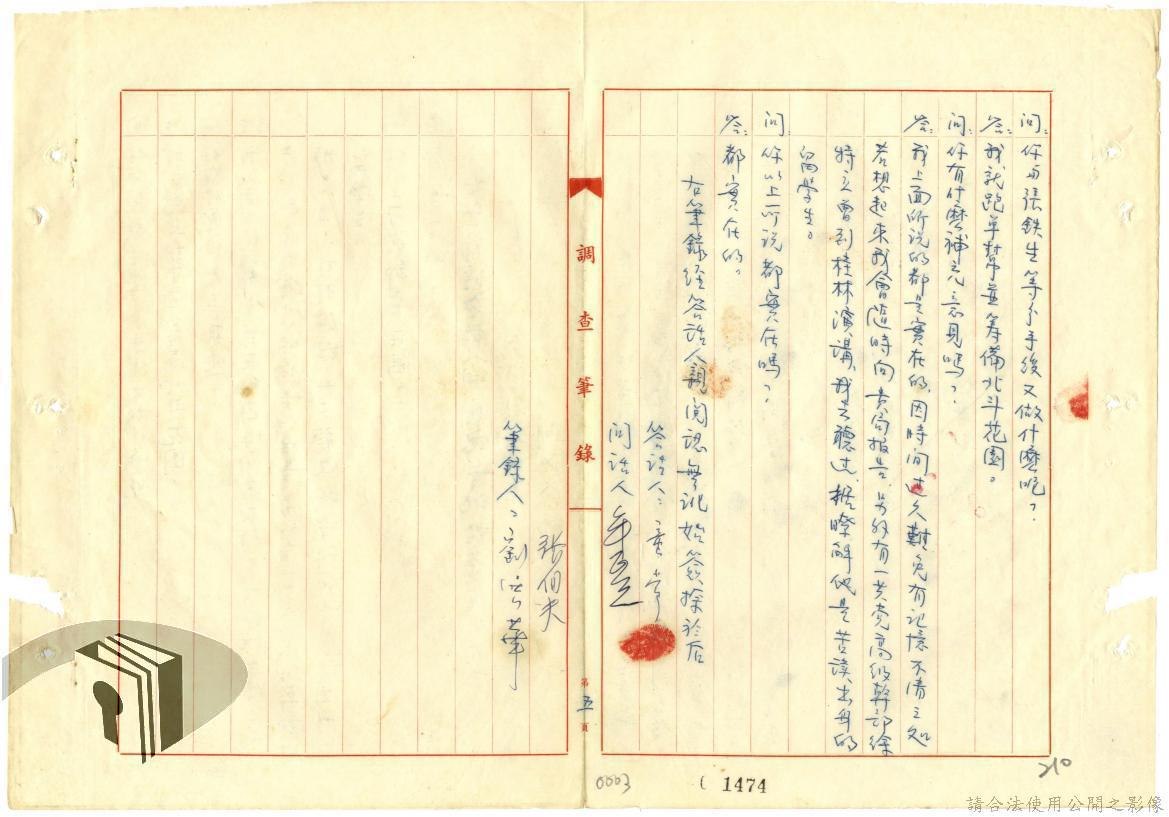 问:你与張鉄生等分手後又做什麼呢?
答:我就跑單幫並筹備北斗花園。
问:你有什麼補充意見嗎?
答:我上面所说的都是實在的,因時间过久難免有记憶不清之処
若想起來我會隨時向貴局报告,另外有一共党高级幹部徐
特立曾到桂林演講,我去聽过,据瞭解他是苦讀出身的
留学生。
问:你以上所说都實在嗎?
答:都實在的。
右筆錄经答話人親阅認無讹始簽捺於后
答話人:
问話人
調查筆錄
第五頁
張伯夫
筆錄人:劉
0003
( 1474
210
請合法使用公開之影像